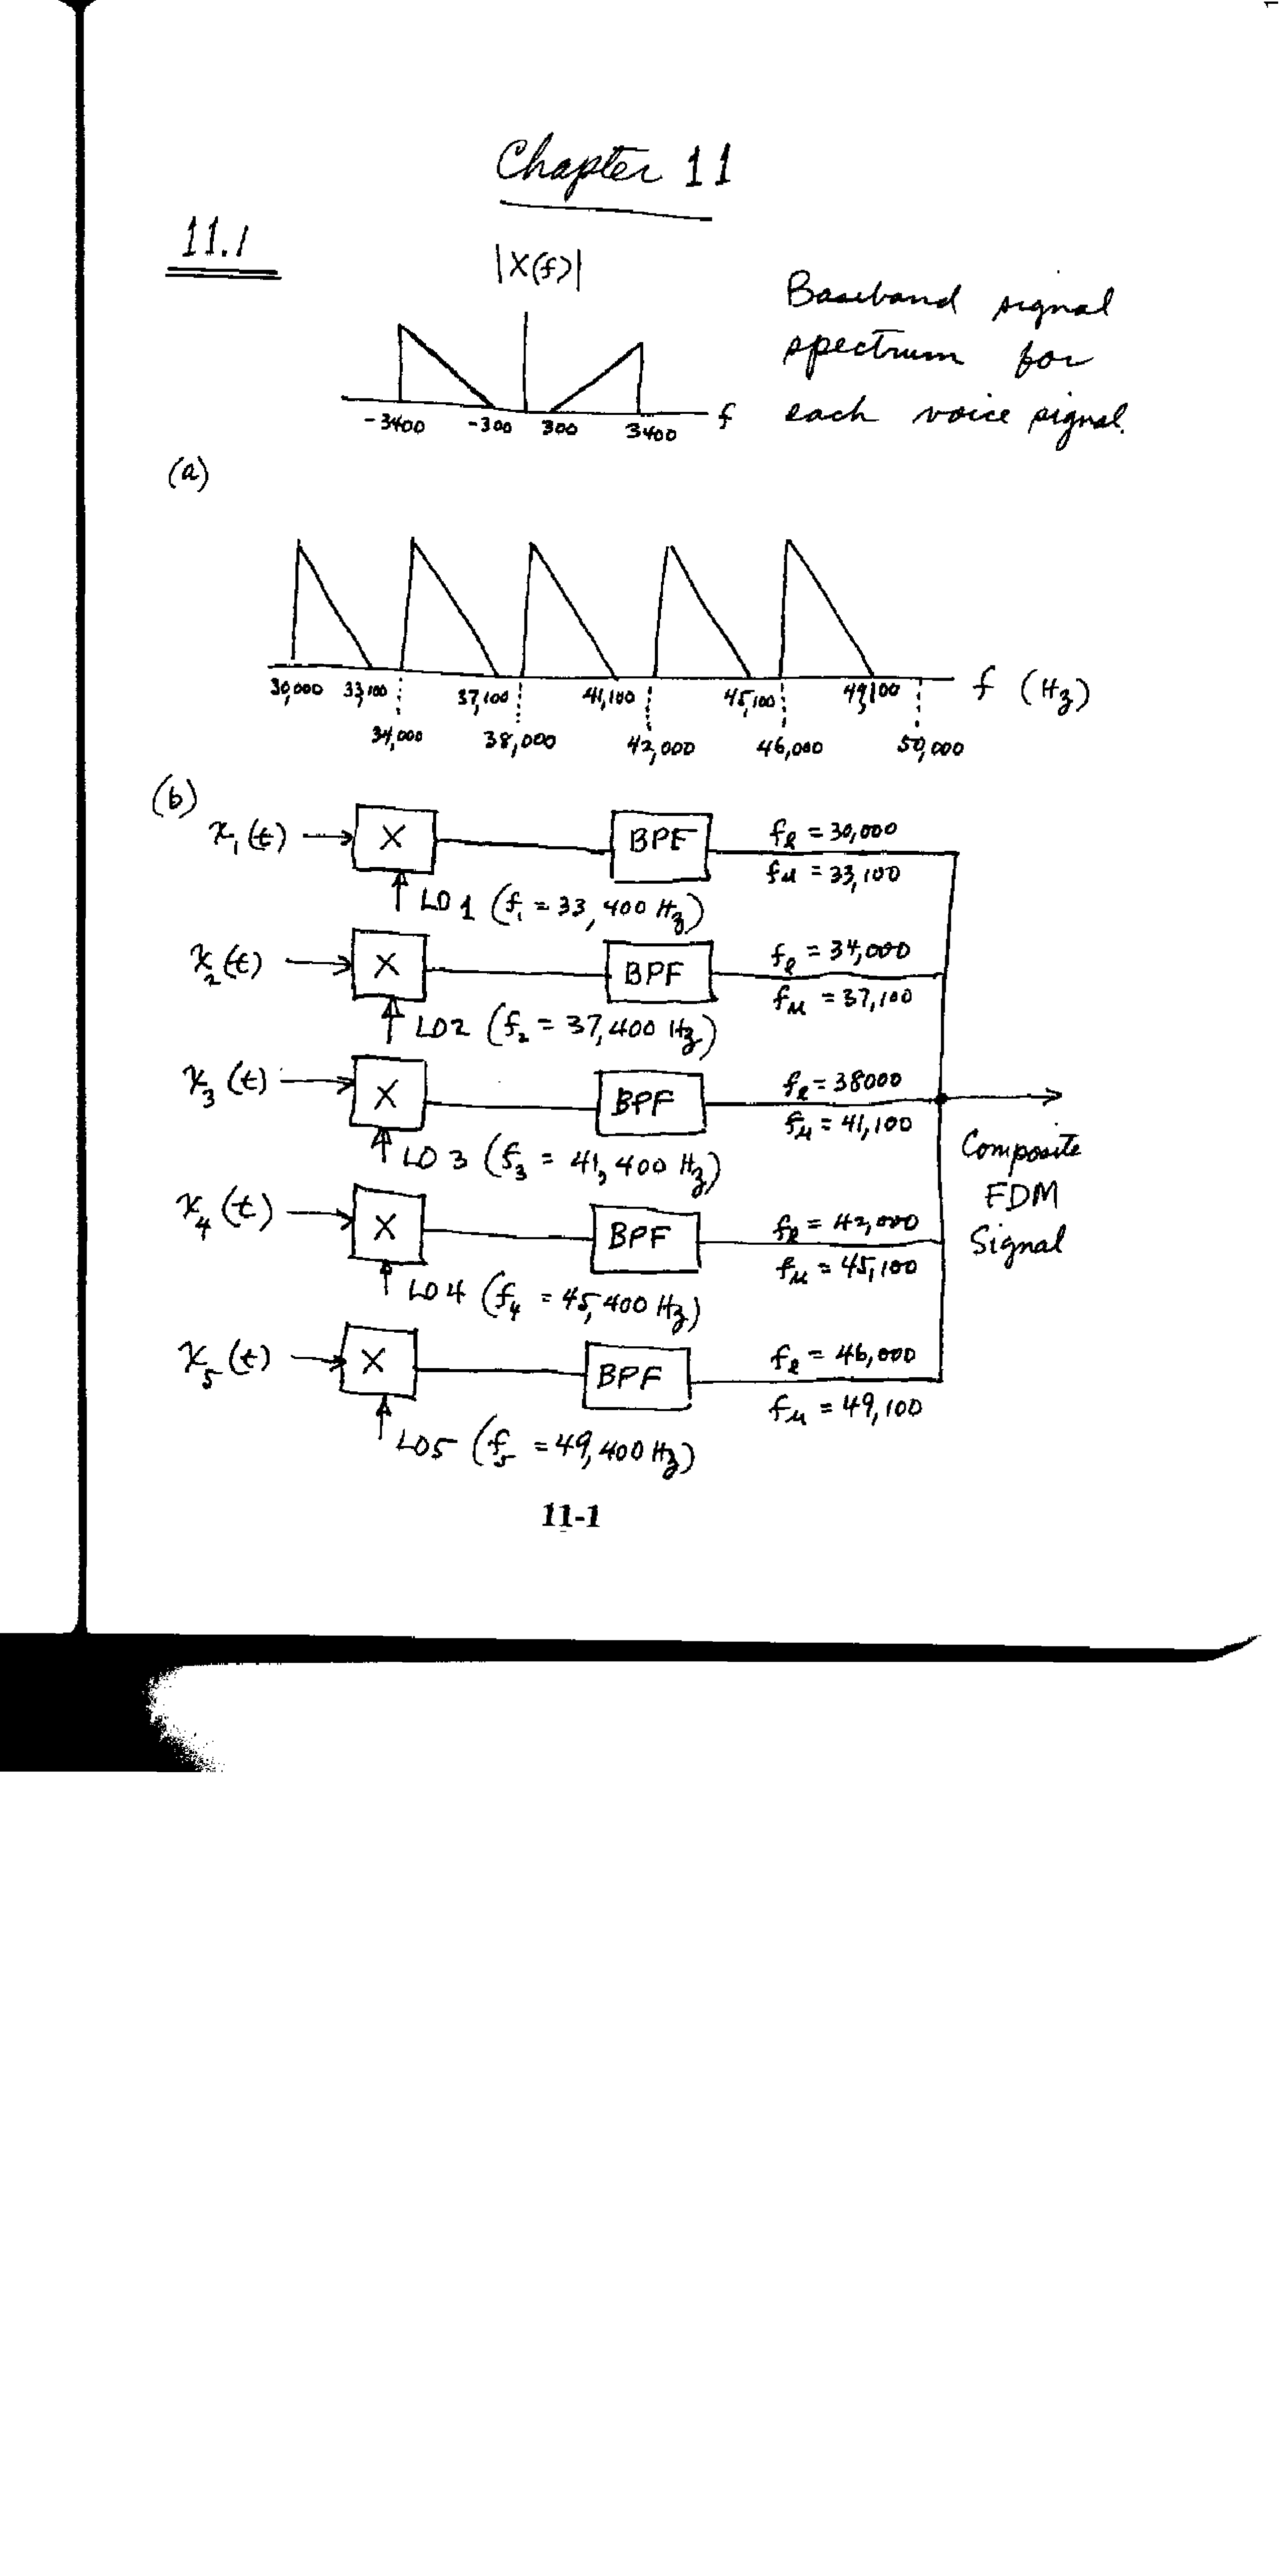 Chapter 11
11.1
|X(f)|
Baseband signal
spectrum for
each voice signal.
-3400 -300 300 3400 f
(a)
30,000 33,100 37,100 41,100 45,100 49,100 f (Hz)
34,000 38,000 42,000 46,000 50,000
(b)
x₁(t) X BPF fℓ = 30,000
fu = 33,100
LO 1 (f₁ = 33,400 Hz)
x₂(t) X BPF fℓ = 34,000
fu = 37,100
LO2 (f₂ = 37,400 Hz)
x₃(t) X BPF fℓ = 38000
fu = 41,100
LO 3 (f₃ = 41,400 Hz)
Composite
FDM
Signal
x₄(t) X BPF fℓ = 42,000
fu = 45,100
LO4 (f₄ = 45,400 Hz)
x₅(t) X BPF fℓ = 46,000
fu = 49,100
LO5 (f₅ = 49,400 Hz)
11-1